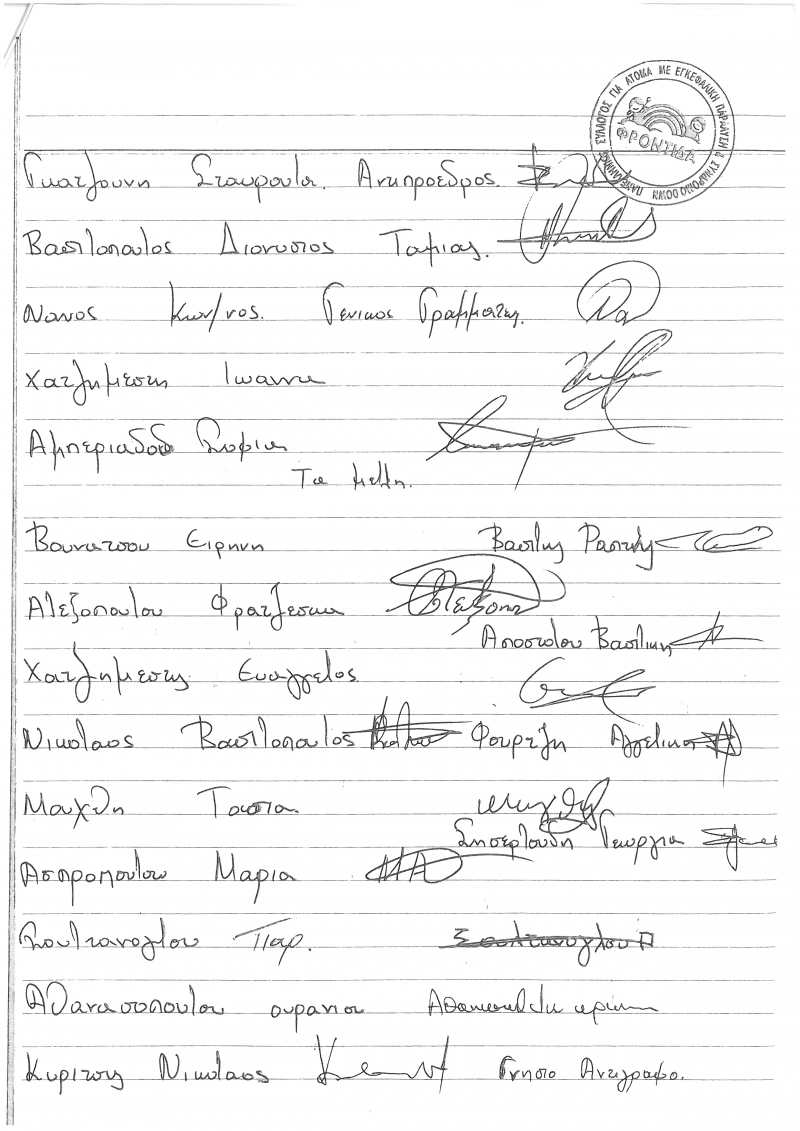 ΠΑΝΕΛΛΗΝΙΟΣ ΣΥΛΛΟΓΟΣ ΓΙΑ ΑΤΟΜΑ ΜΕ ΕΓΚΕΦΑΛΙΚΗ ΠΑΡΑΛΥΣΗ & ΣΥΝΔΡΟΜΟ DOWN
ΦΡΟΝΤΙΔΑ
Γκατζουνη Σταυρουλα. Αντιπροεδρος.
Βασιλοπουλος Διονυσιος Ταμιας.
Νανος Κων/νος. Γενικος Γραμματεας.
Χατζημεσης Ιωαννα
Αμπεριαδου Σοφια
Τα μελη.
Βουνατσου Ειρηνη Βασιλης Ραπτης
Αλεξοπουλου Φρατζεσκα
Αποστολου Βασιλικη
Χατζημεσης Ευαγγελος
Νικολαος Βασιλοπουλος Φουρεζη Αγγελικη
Μαχθη Τασια
Γεωργια
Ασπροπουλου Μαρια
Σουλτανογλου Παρ. Σουλτανογλου Π
Αθανασοπουλου ουρανια
Κυριτσης Νικολαος Γνησιο Αντιγραφο.